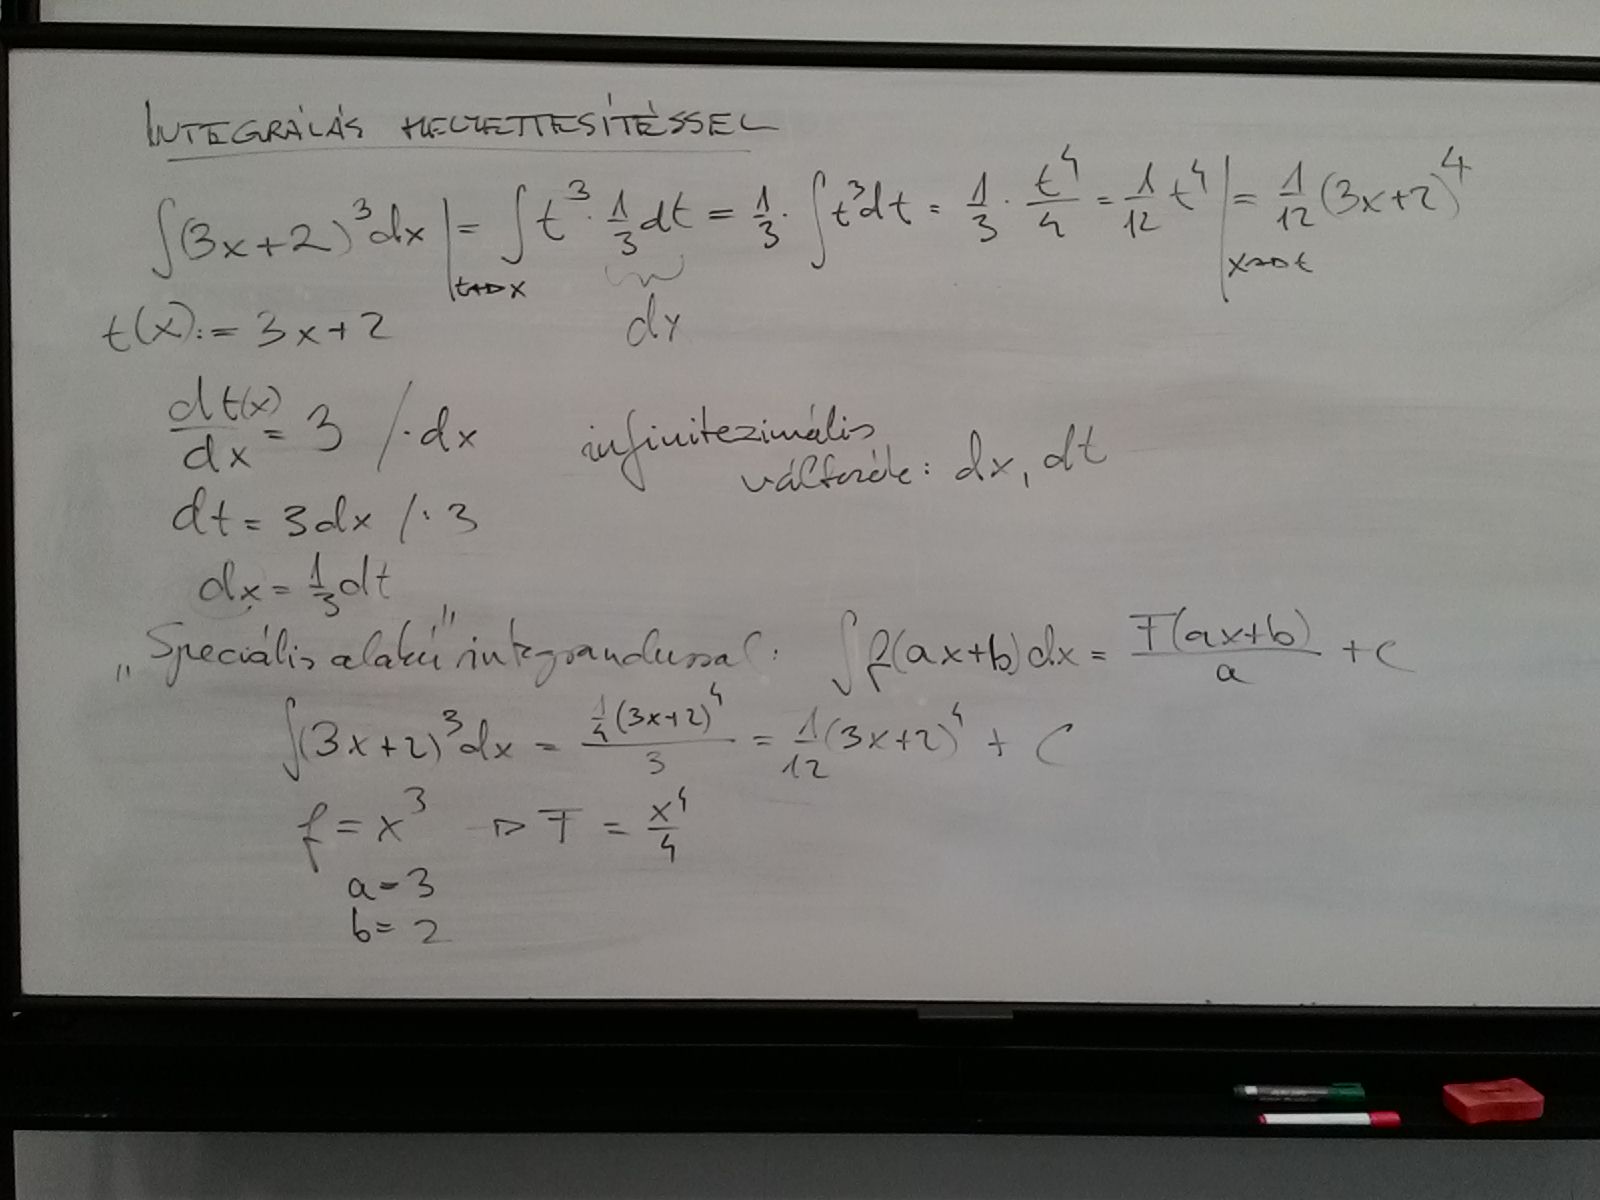 INTEGRÁLÁS HELYETTESÍTÉSSEL
∫(3x+2)³dx |t→x = ∫t³·1/3 dt = 1/3·∫t³dt = 1/3·t⁴/4 = 1/12 t⁴ |x→t = 1/12 (3x+2)⁴
dx
t(x):= 3x+2
dt(x)/dx = 3 /·dx
infinitezimális
változók: dx, dt
dt = 3dx /:3
dx = 1/3 dt
„Speciális alakú" integrandussal: ∫f(ax+b)dx = F(ax+b)/a + C
∫(3x+2)³dx = 1/4(3x+2)⁴/3 = 1/12(3x+2)⁴ + C
f = x³ → F = x⁴/4
a=3
b=2